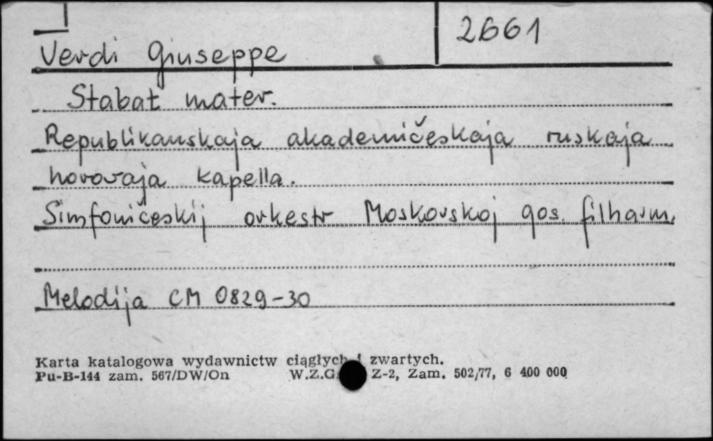 2661
Verdi Giuseppe
Stabat mater.
Republikanskaja akademičeskaja ruskaja
horovaja kapella.
Simfoničeskij orkestr Moskovskoj gos. filharm.
Melodija CM 0829-30
Karta katalogowa wydawnictw ciągłych i zwartych.
Pu-B-144 zam. 567/DW/On W.Z.G. Z-2, Zam. 502/77, 6 400 000